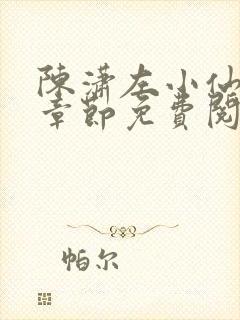 陳瀟左小仙
章節免費閱
帕尔